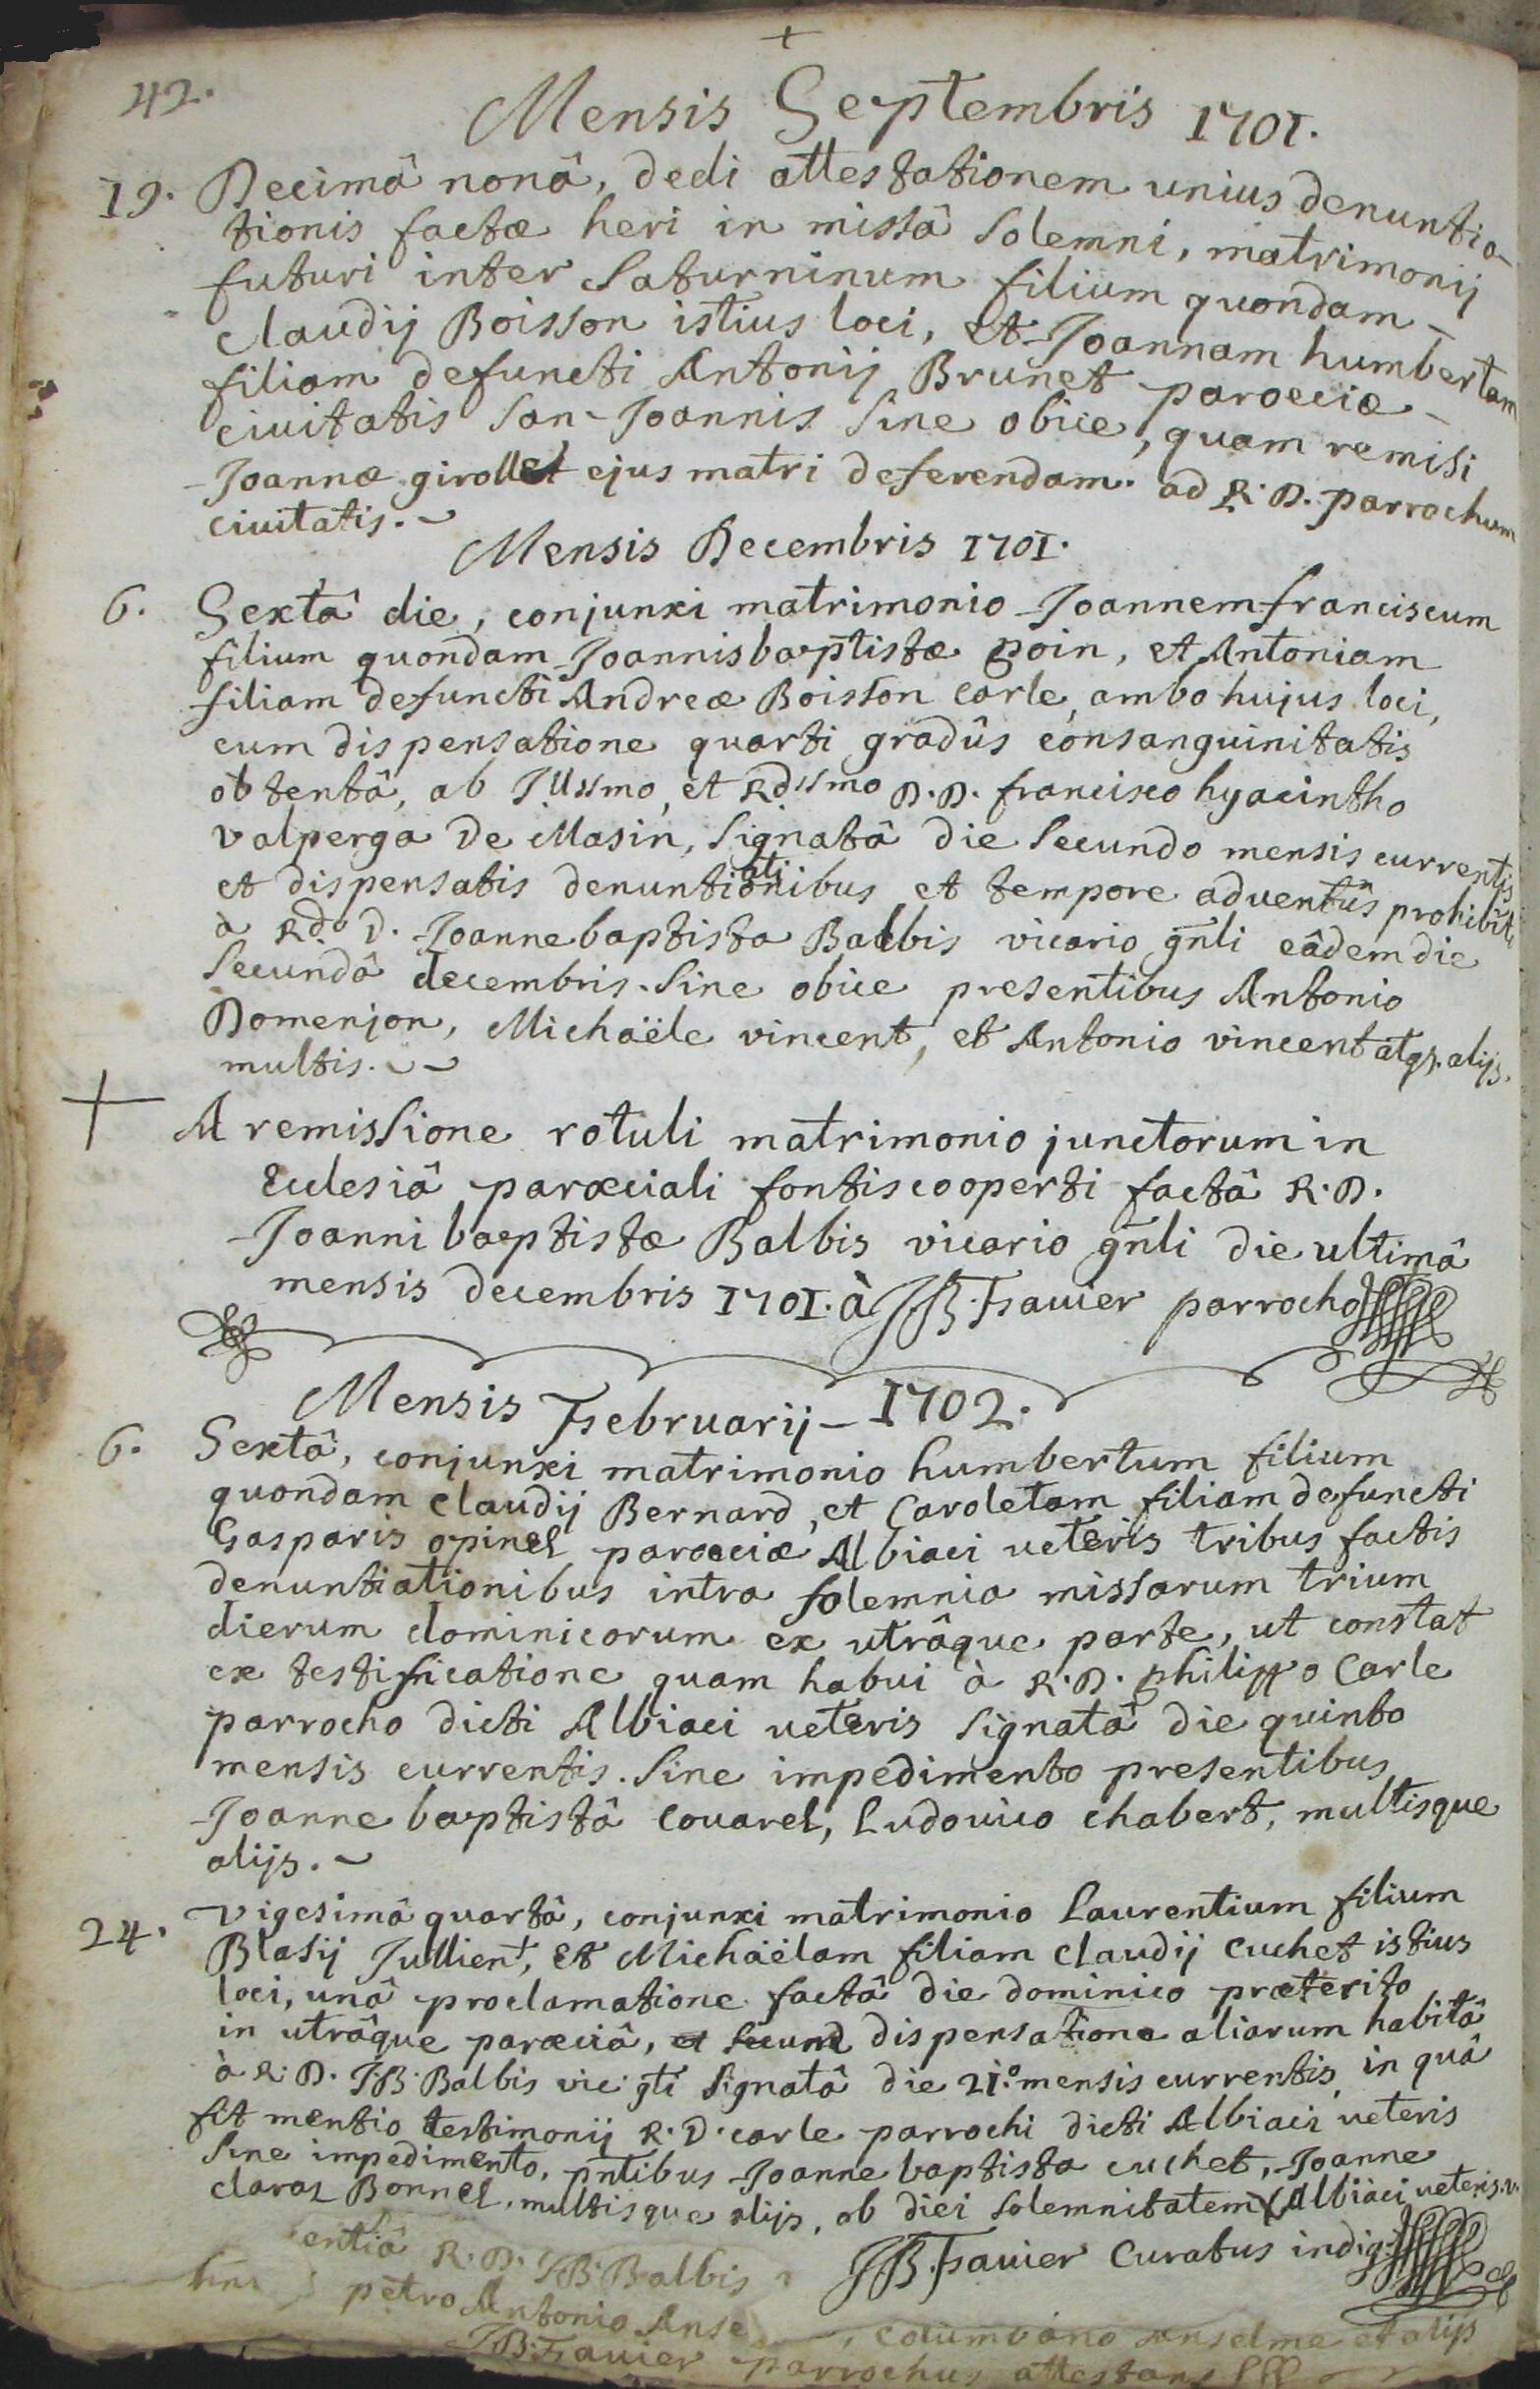 42.
Mensis Septembris 1701.
19. Decimâ nonâ, dedi attestationem unius denuntia-
tionis factæ heri in missâ solemni, matrimonij
futuri inter Saturninum filium quondam
Claudij Boisson istius loci, et Joannam humbertam
filiam defuncti Antonij Brunet paroeciæ
civitatis San-Joannis sine obice, quam remisi
Joannæ girollet ejus matri deferendam ad R. D. parrochum
civitatis.
Mensis Decembris 1701.
6. Sextâ die, conjunxi matrimonio Joannemfranciscum
filium quondam Joannisbaptistæ poin, et Antoniam
filiam defuncti Andreæ Boisson carle, ambo hujus loci,
cum dispensatione quarti gradûs consanguinitatis
obtentâ, ab Illssmo, et Rdssmo D. D. francisco hyacintho
valperga De Masin, signatâ die secundo mensis currentis
et dispensatis denuntiationibus et tempore adventûs prohibiti
à Rdo D. Joannebaptista Balbis vicario gnli eâdem die
secundâ decembris. sine obice presentibus Antonio
Domenjon, Michaële vincent, et Antonio vincent atq; alijs
multis.
A remissione rotuli matrimonio junctorum in
Ecclesiâ paroeciali fontiscooperti factâ R. D.
Joanni baptistæ Balbis vicario gnli die ultimâ
mensis decembris 1701. à JB. Favier parrocho
Mensis Februarij - 1702.
6. Sextâ, conjunxi matrimonio humbertum filium
quondam Claudij Bernard, et Caroletam filiam defuncti
Gasparis opinel paroeciæ Albiaci veteris tribus factis
denuntiationibus intra solemnia missarum trium
dierum dominicorum ex utrâque parte, ut constat
ex testificatione quam habui à R. D. philippo Carle
parrocho dicti Albiaci veteris signatâ die quinto
mensis currentis. sine impedimento presentibus
Joanne baptistâ Couarel, Ludovico chabert, multisque
alijs.
24. vigesimâ quartâ, conjunxi matrimonio Laurentium filium
Blasij Jullient, et Michaëlam filiam Claudij Cuchet istius
loci, unâ proclamatione factâ die dominico præterito
in utrâque paroeciâ, et secund dispensatione aliarum habitâ
à R. D. J.B. Balbis vic. gli signatâ die 21.o mensis currentis, in quâ
fit mentio testimonij R. D. carle parrochi dicti Albiaci veteris
sine impedimento, pntibus Joanne baptista cuchet, Joanne
claraz Bonnel, multisque alijs, ob diei solemnitatem Albiaci veteris.
JB. Favier Curatus indig.
entiâ R. D. JB. Balbis
petro Antonio Anse
, columbano anselme et alijs
JB. Favier parrochus attestans